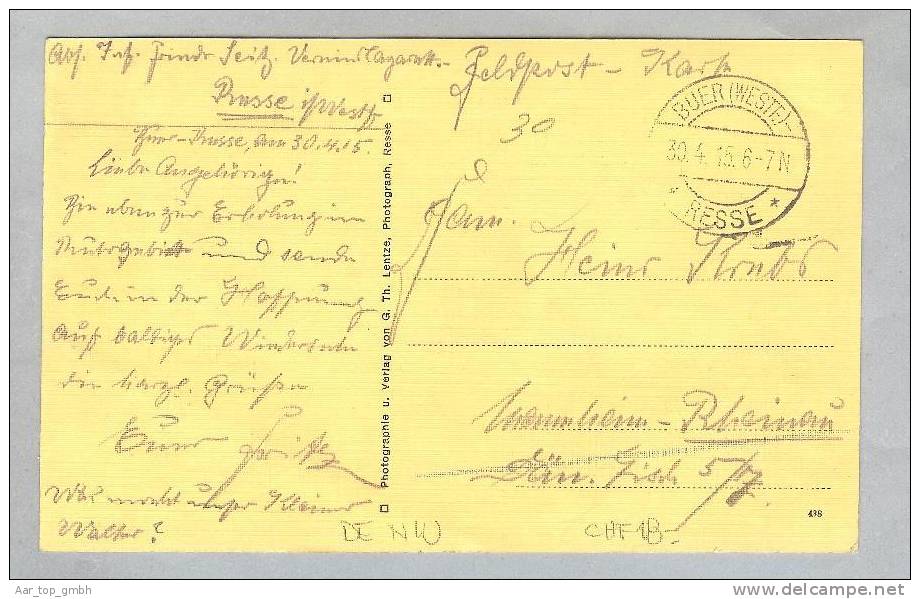 Abs. Inf. Friedr. Seitz. Vereinslazarett.
Resse i/Westf
Buer-Resse, am 30.4.15.
Liebe Angehörigen!
Bin eben zur Erholung im
Ruhrgebiet und sende
Euch in der Hoffnung
auf baldiges Wiedersehn
die herzl. Grüßen
Euer Fritz
Was macht unser Kleiner
Walter?
Photographie u. Verlag von G. Th. Lentze, Photograph, Resse
Feldpost - Karte
30
BUER (WESTF)-
30.4.15.6-7N
RESSE *
Fam.
Heinr Krebs
Mannheim - Rheinau
5/7
438
DE NW
CHF 18.-
Aar_top_gmbh
www.delcampe.net